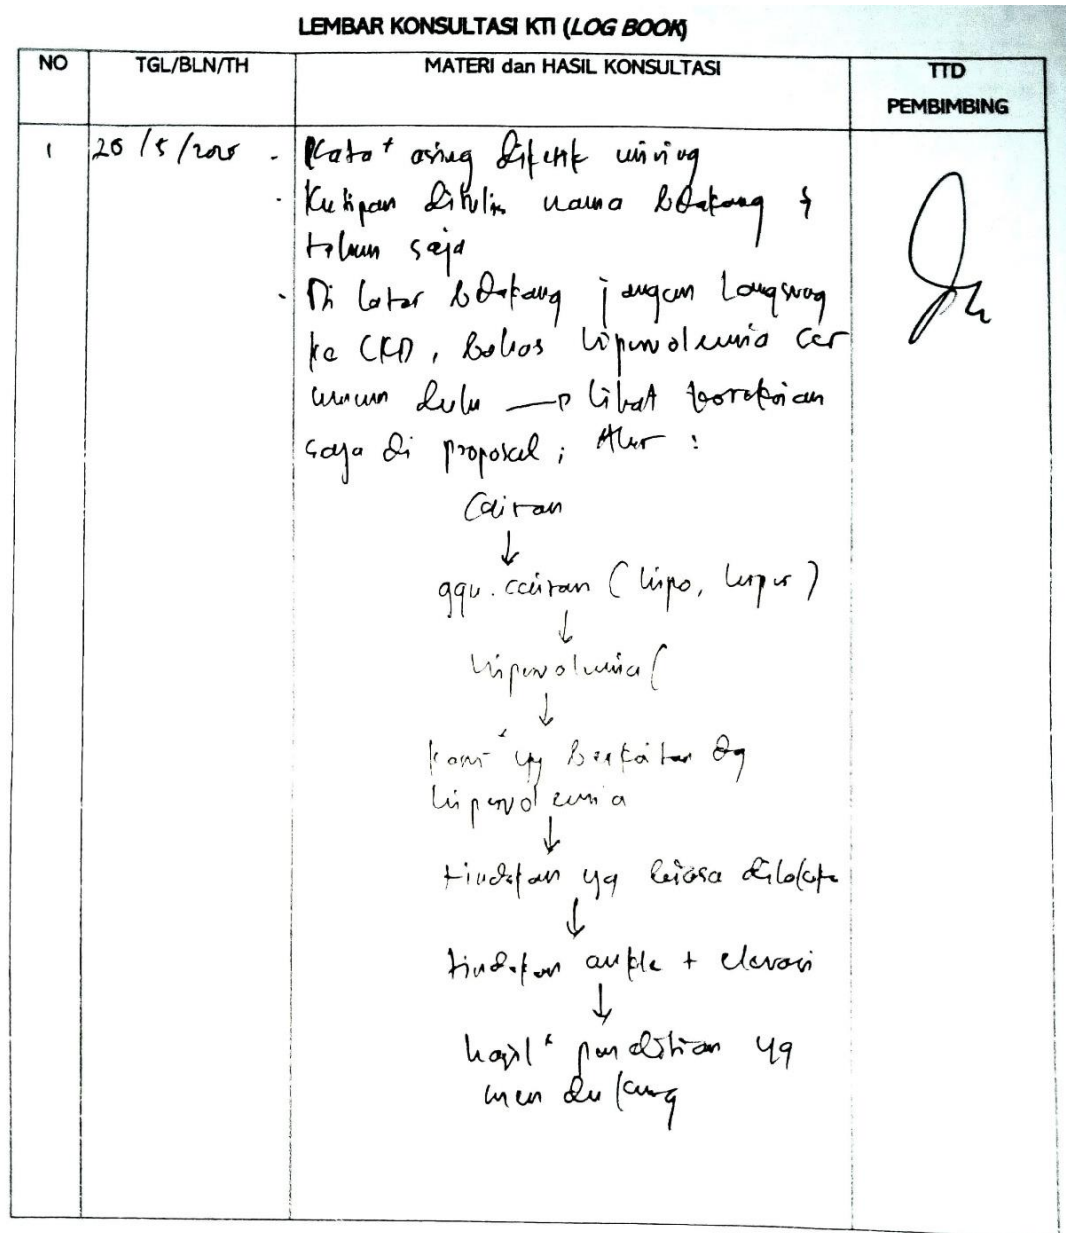 LEMBAR KONSULTASI KTI (LOG BOOK)
NO TGL/BLN/TH MATERI dan HASIL KONSULTASI TTD PEMBIMBING
1 26/5/2025 - Kata² asing diketik miring
- Kutipan ditulis nama belakang &
tahun saja
- Di latar belakang jangan langsung
ke CKD, bahas hipervolemia car
umum dulu → lihat
saya di proposal; Alur :
Cairan
↓
ggn. cairan (hipo, hiper)
↓
hipervolemia (
↓
kasus² yg berkaitan dg
hipervolemia
↓
tindakan yg biasa
↓
tindakan ankle + elevasi
↓
hasil² penelitian yg
mendukung